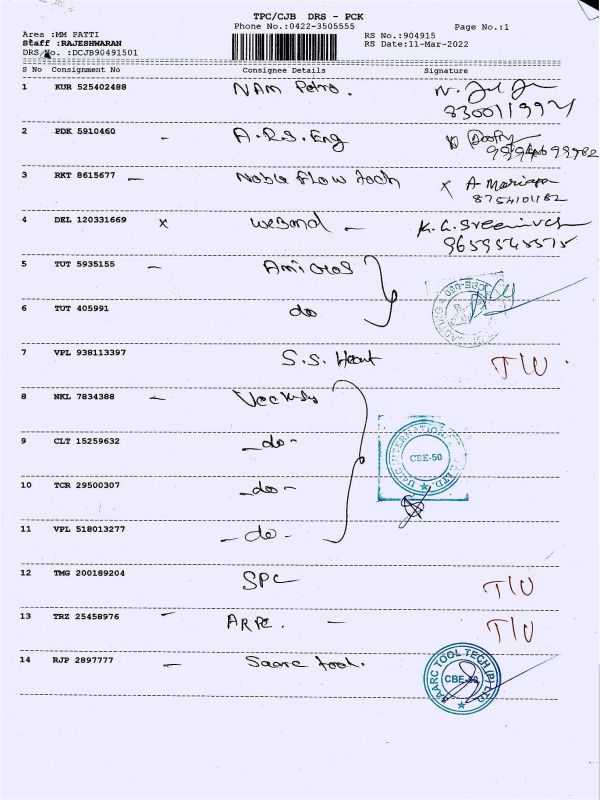 TPC/CJB DRS - PCK
Phone No.:0422-3505555 Page No.:1
Area :MM PATTI RS No.:904915
Staff :RAJESHWARAN RS Date:11-Mar-2022
DRS No. :DCJB90491501
S No Consignment No Consignee Details Signature
1 KUR 525402488 NAM Petro.
8300119974
2 PDK 5910460 - A.R.S. Eng
3 RKT 8615677 - Noble Flow tech x A Mariappa
8754101182
4 DEL 120331669 x WeBond - K.G. Sreenivas
9659545575
5 TUT 5935155 - Amicros
6 TUT 405991 do
7 VPL 938113397 S.S. Heart T/U
8 NKL 7834388 -
9 CLT 15259632 -do- CBE-50
10 TCR 29500307 -do-
11 VPL 518013277 -do-
12 TMG 200189204 SPC T/U
13 TRZ 25458976 - ARPC. - T/U
14 RJP 2897777 - Saarc tool. SAARC TOOL TECH (P) LTD. CBE-50